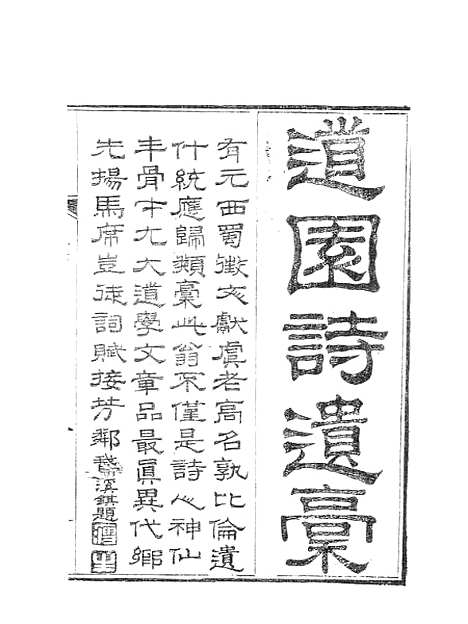 道園詩遺稾
有元西蜀徵文獻虞老高名孰比倫遺
什統應歸類稾此翁不僅是詩人神仙
丰骨中九大道學文章品最眞異代鄉
先揚馬席豈徒詞賦接芳鄰